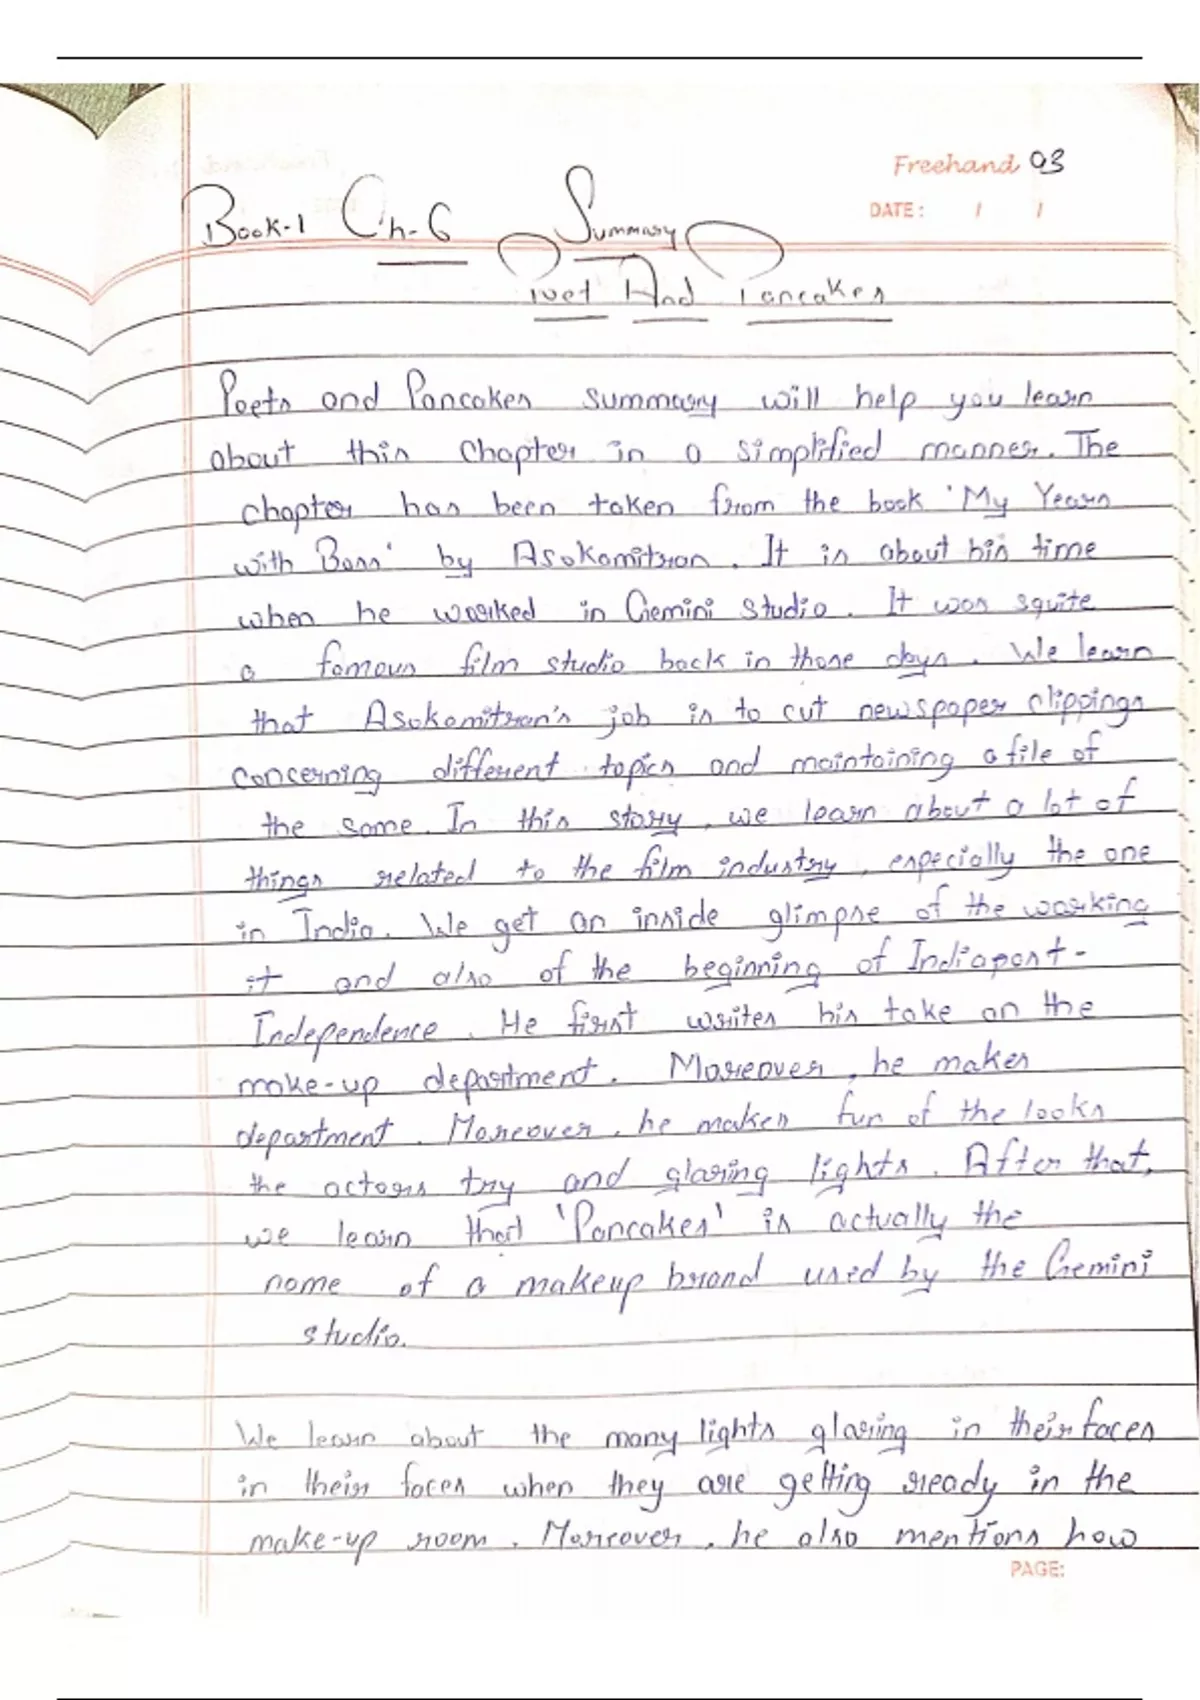 Freehand 03
DATE: / /
Book-1 Ch-6 Summary
Poet And Pancakes
Poets and Pancakes summary will help you learn
about this Chapter in a simplified manner. The
chapter has been taken from the book 'My Years
with Boss' by Asokamitran. It is about his time
when he worked in Gemini Studio. It was squite
a famous film studio back in those days. We learn
that Asokamitran's job is to cut newspaper clippings
concerning different topics and maintaining a file of
the same. In this story, we learn about a lot of
things related to the film industry, especially the one
in India. We get an inside glimpse of the working
it and also of the beginning of India post-
Independence. He first writes his take on the
make-up department. Moreover, he makes
department. Moreover, he makes fun of the looks
the actors try and glaring lights. After that,
we learn that 'Pancakes' is actually the
name of a makeup brand used by the Gemini
studio.
We learn about the many lights glaring in their faces
in their faces when they are getting ready in the
make-up room. Moreover, he also mentions how
PAGE: